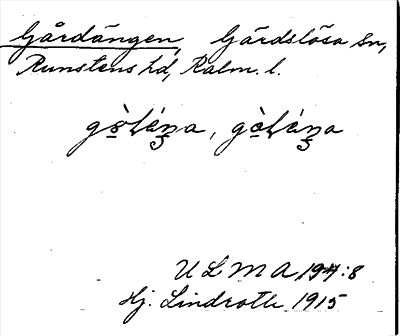 Gårdängen, Gärdslösa sn,
Runstens hd, Kalm. l.
ULMA 194:8
Hj. Lindroth 1915